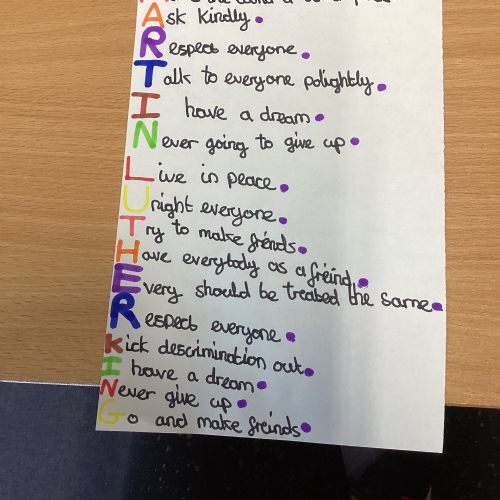 Ask kindly.
Respect everyone.
Talk to everyone polightly.
I have a dream.
Never going to give up.
Live in peace.
Unight everyone.
Try to make friends.
Have everybody as a freind.
Every should be treated the same.
Respect everyone.
Kick descrimination out.
I have a dream.
Never give up.
Go and make freinds.